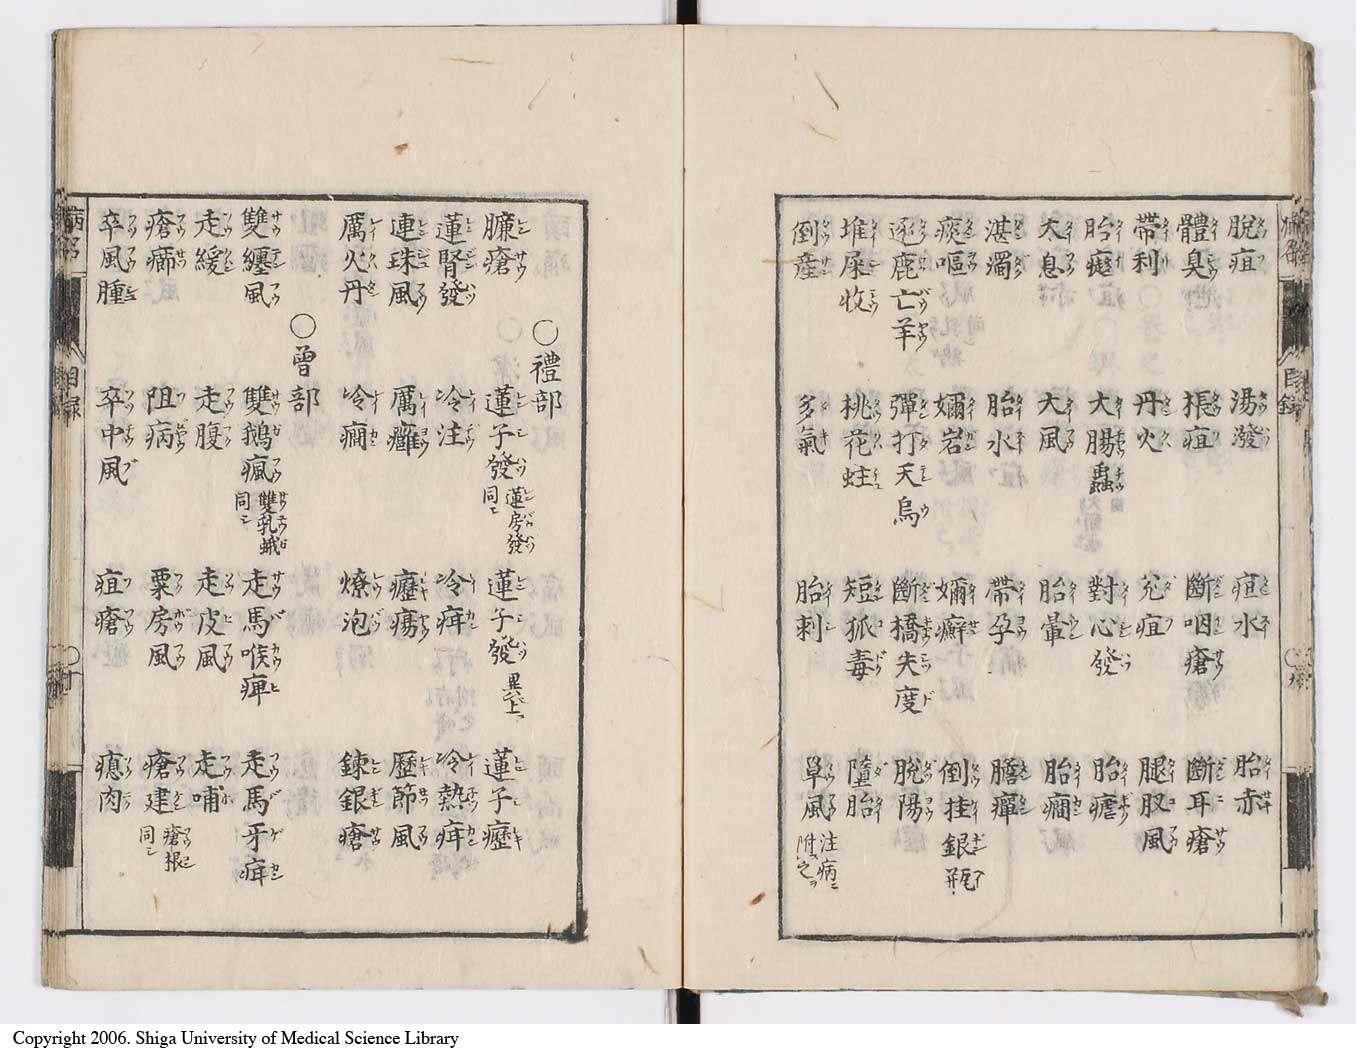 脫疽 湯潑 疽水 胎赤
體臭 棖疽 斷咽瘡 斷耳瘡
帶利 丹火 兊疽 腿股風
胎㾭 大腸蟲 對心發 胎瘧
太息 大風 胎暈 胎癎
湛濁 胎水 帶孕 膽癉
痰嘔 嬭岩 嬭癬 倒挂銀瓶
逐鹿亡羊 彈打天烏 斷橋失度 脫陽
堆屎收 桃花蛀 短狐毒 墮胎
倒產 多氣 胎刺 單風 注病ニ附之ヲ
臁瘡 ○禮部 蓮子發 蓮房發同シ 蓮子發 異上ニ 蓮子癧
蓮腎發 冷注 冷疳 冷熱疳
連珠風 厲癰 癧瘍 歷節風
厲火丹 冷癎 燎泡 鍊銀瘡
○曾部
雙纏風 雙鵝瘋 雙乳蛾同シ 走馬喉痺 走馬牙疳
走緩 走腹 走皮風 走哺
瘡㿃 阻病 粟房風 瘡建 瘡根同シ
卒風腫 卒中風 疽瘡 瘜肉
目錄
Copyright 2006. Shiga University of Medical Science Library